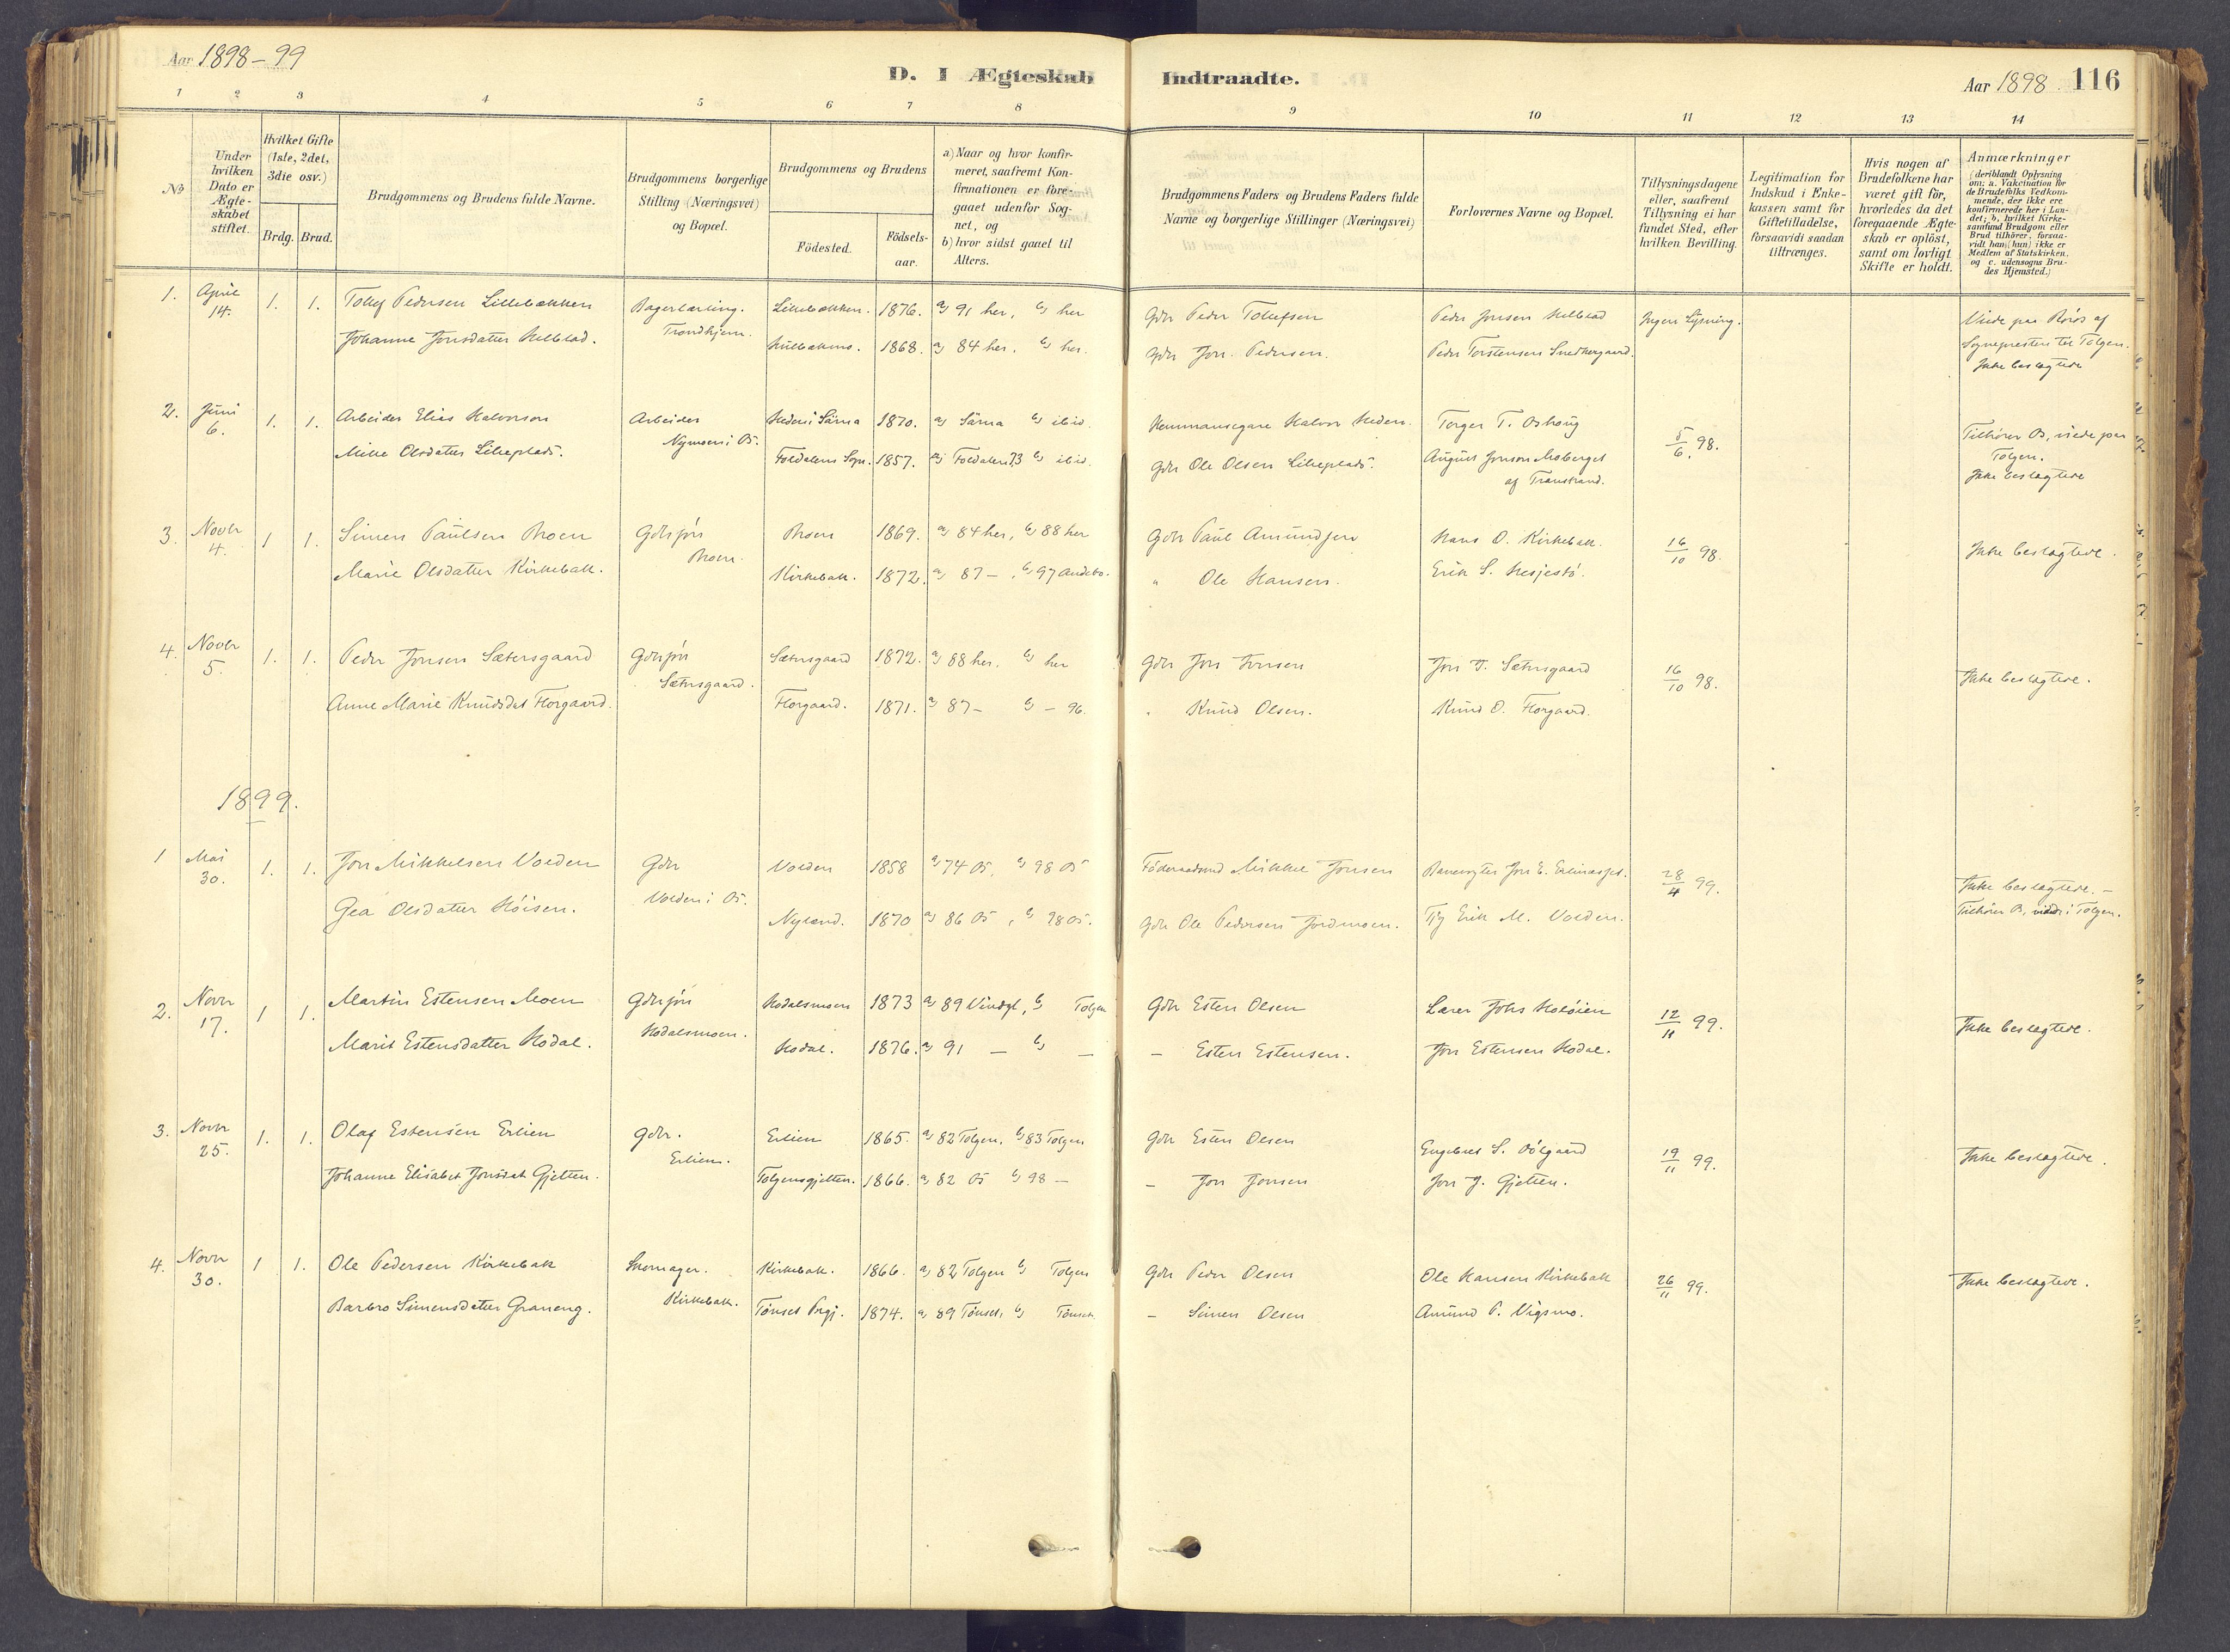 Aar 1898-99
D. I Ægteskab Indtraadte.
Aar 1898. 116
1 2 3 4 5 6 7 8 9 10 11 12 13 14
No
Under hvilken Dato er Ægteskabet stiftet.
Hvilket Gifte (1ste, 2det, 3die osv.)
Brdg. Brud.
Brudgommens og Brudens fulde Navne.
Brudgommens borgerlige Stilling (Næringsvei) og Bopæl.
Brudgommens og Brudens
Födested.
Födsels-aar.
a) Naar og hvor konfir-
meret, saafremt Kon-
firmationen er fore-
gaaet udenfor Sog-
net, og
b) hvor sidst gaaet til
Alters.
Brudgommens Faders og Brudens Faders fulde
Navne og borgerlige Stillinger (Næringsvei)
Forlovernes Navne og Bopæl.
Tillysningsdagene
eller, saafremt
Tillysning ei har
fundet Sted, efter
hvilken Bevilling.
Legitimation for
Indskud i Enke-
kassen samt for
Giftetilladelse,
forsaavidt saadan
tiltrænges.
Hvis nogen af
Brudefolkene har
været gift för,
hvorledes da det
foregaaende Ægte-
skab er oplöst,
samt om lovligt
Skifte er holdt.
Anmærkninger
(deriblandt Oplysning
om: a. Vakcination for
de Brudefolks Vedkom-
mende, der ikke ere
konfirmerede her i Lan-
det; b. hvilket Kirke-
samfund Brudgom eller
Brud tilhörer, forsaa-
vidt han (hun) ikke er
Medlem af Statskirken,
og c. udensogns Bru-
des Hjemsted.)
1. April 14. 1. 1. Tollef Pedersen Lillebakken Bagerlærling. Trondhjem. Lillebakken. 1876. a) 91 her, b) her Gdr Peder Tollefsen Peder Jonsen Ingen Lysning. Viede paa Röros af
Johanne Jonsdatter 1868. a) 84 her, b) her. Gdr Jon Pedersen. Peder Torstensen Snedkergaard. Sognepresten til Tolgen.
Ikke beslægtede
2. Juni 6. 1. 1. Arbeider Elias Halvorson Arbeider Nymoen i Os. Heden i Särna 1870. a) Särna b) ibid. Hemmansegare Halvor Heden. Torger T. Oshoug 5/6 98. Tilhörer Os, viede paa Tolgen.
Olsdatter Lilleplads. Foldalens Sogn. 1857. a) Foldalen 73 b) ibid. Gdr Ole Olsen Lilleplads. August Jonson Moberget af Transtrand. Ikke beslægtede
3. Novbr 4. 1 1. Simen Paulsen Moen Gdrsøn Moen. Moen 1869. a) 84 her, b) 88 her Gdr Paul Amundsen Hans O. Kirkebak. 16/10 98. Ikke beslægtede.
Marie Olsdatter Kirkebak. Kirkebak. 1872. a) 87 -, b) 97 Andebo. " Ole Hansen. Erik S.
4. Novbr 5. 1. 1. Peder Jonsen Sætersgaard Gdrsøn Sætersgaard. Sætersgaard 1872. a) 88 her. b) her Gdr Jon Jonsen Jon J. Sætersgaard 16/10 98. Ikke beslægtede.
Anne Marie Knudsdat Florgaard. Florgaard. 1871. a) 87 - b) - 96. " Knud Olsen. Knud O. Florgaard.
1899.
1 Mai 30. 1. 1. Jon Mikkelsen Volden Gdr Volden i Os. Volden 1858 a) 74 Os, b) 98 Os Föderaadsmd Mikkel Jonsen Banevogter Jon E. 28/4 99. Ikke beslægtede. -
Gea Olsdatter Höisen. Nyland. 1870 a) 86 Os, b) 98 Os. Gdr Ole Pedersen Jordmoen. Erik M. Volden. Tilhörer Os, viede i Tolgen.
2. Novbr 17. 1 1. Martin Estensen Moen Gdrsøn Hodalsmoen. Hodalsmoen 1873 a) 89 Vindgl, b) Tolgen Gdr Esten Olsen Lærer Johs Holöien 12/11 99. Ikke beslægtede.
Marit Estensdatter Hodal. Hodal. 1876. a) 91 - b) - - Esten Estensen. Jon Estensen Hodal.
3. Novbr 25. 1. 1. Olaf Estensen Erlien Gdr. Erlien. Erlien 1865. a) 82 Tolgen, b) 83 Tolgen Gdr Esten Olsen Engebret S. 19/11 99. Ikke beslægtede.
Johanne Elisabet Jonsdat Gjelten. Tolgensgjelten. 1866. a) 82 Os b) 98 - - Jon Jonsen Jon J. Gjelten.
4. Novbr 30. 1 1. Ole Pedersen Kirkebak Skomager. Kirkebak. Kirkebak. 1866. a) 82 Tolgen b) Tolgen Gdr Peder Olsen Ole Hansen Kirkebak 26/11 99. Ikke beslægtede.
Barbro Simensdatter Graneng. Tönset Prgj. 1874. a) 89 Tönset, b) Tönset. - Simen Olsen Amund P. Vigsmo.